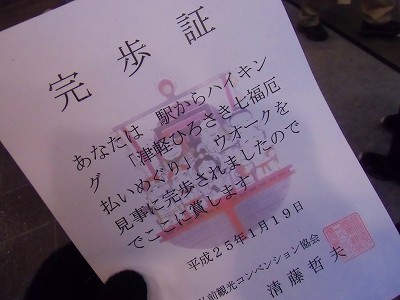 完歩証
あなたは 駅からハイキン
グ 「津軽ひろさき七福厄
払いめぐり」 ウオークを
見事に完歩されましたので
でここに賞します
平成25年1月19日
弘前観光コンベンション協会
清藤哲夫